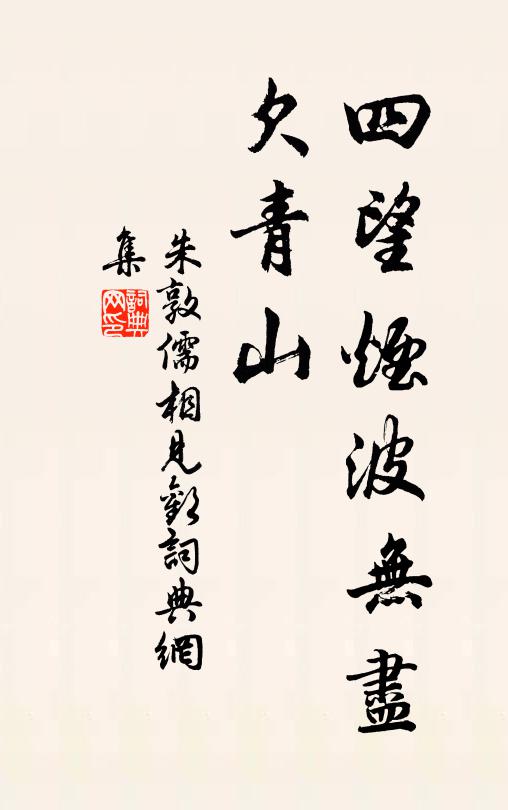 四望煙波無盡
欠青山
朱敦儒相見歡詞典網
集
詞典
网印